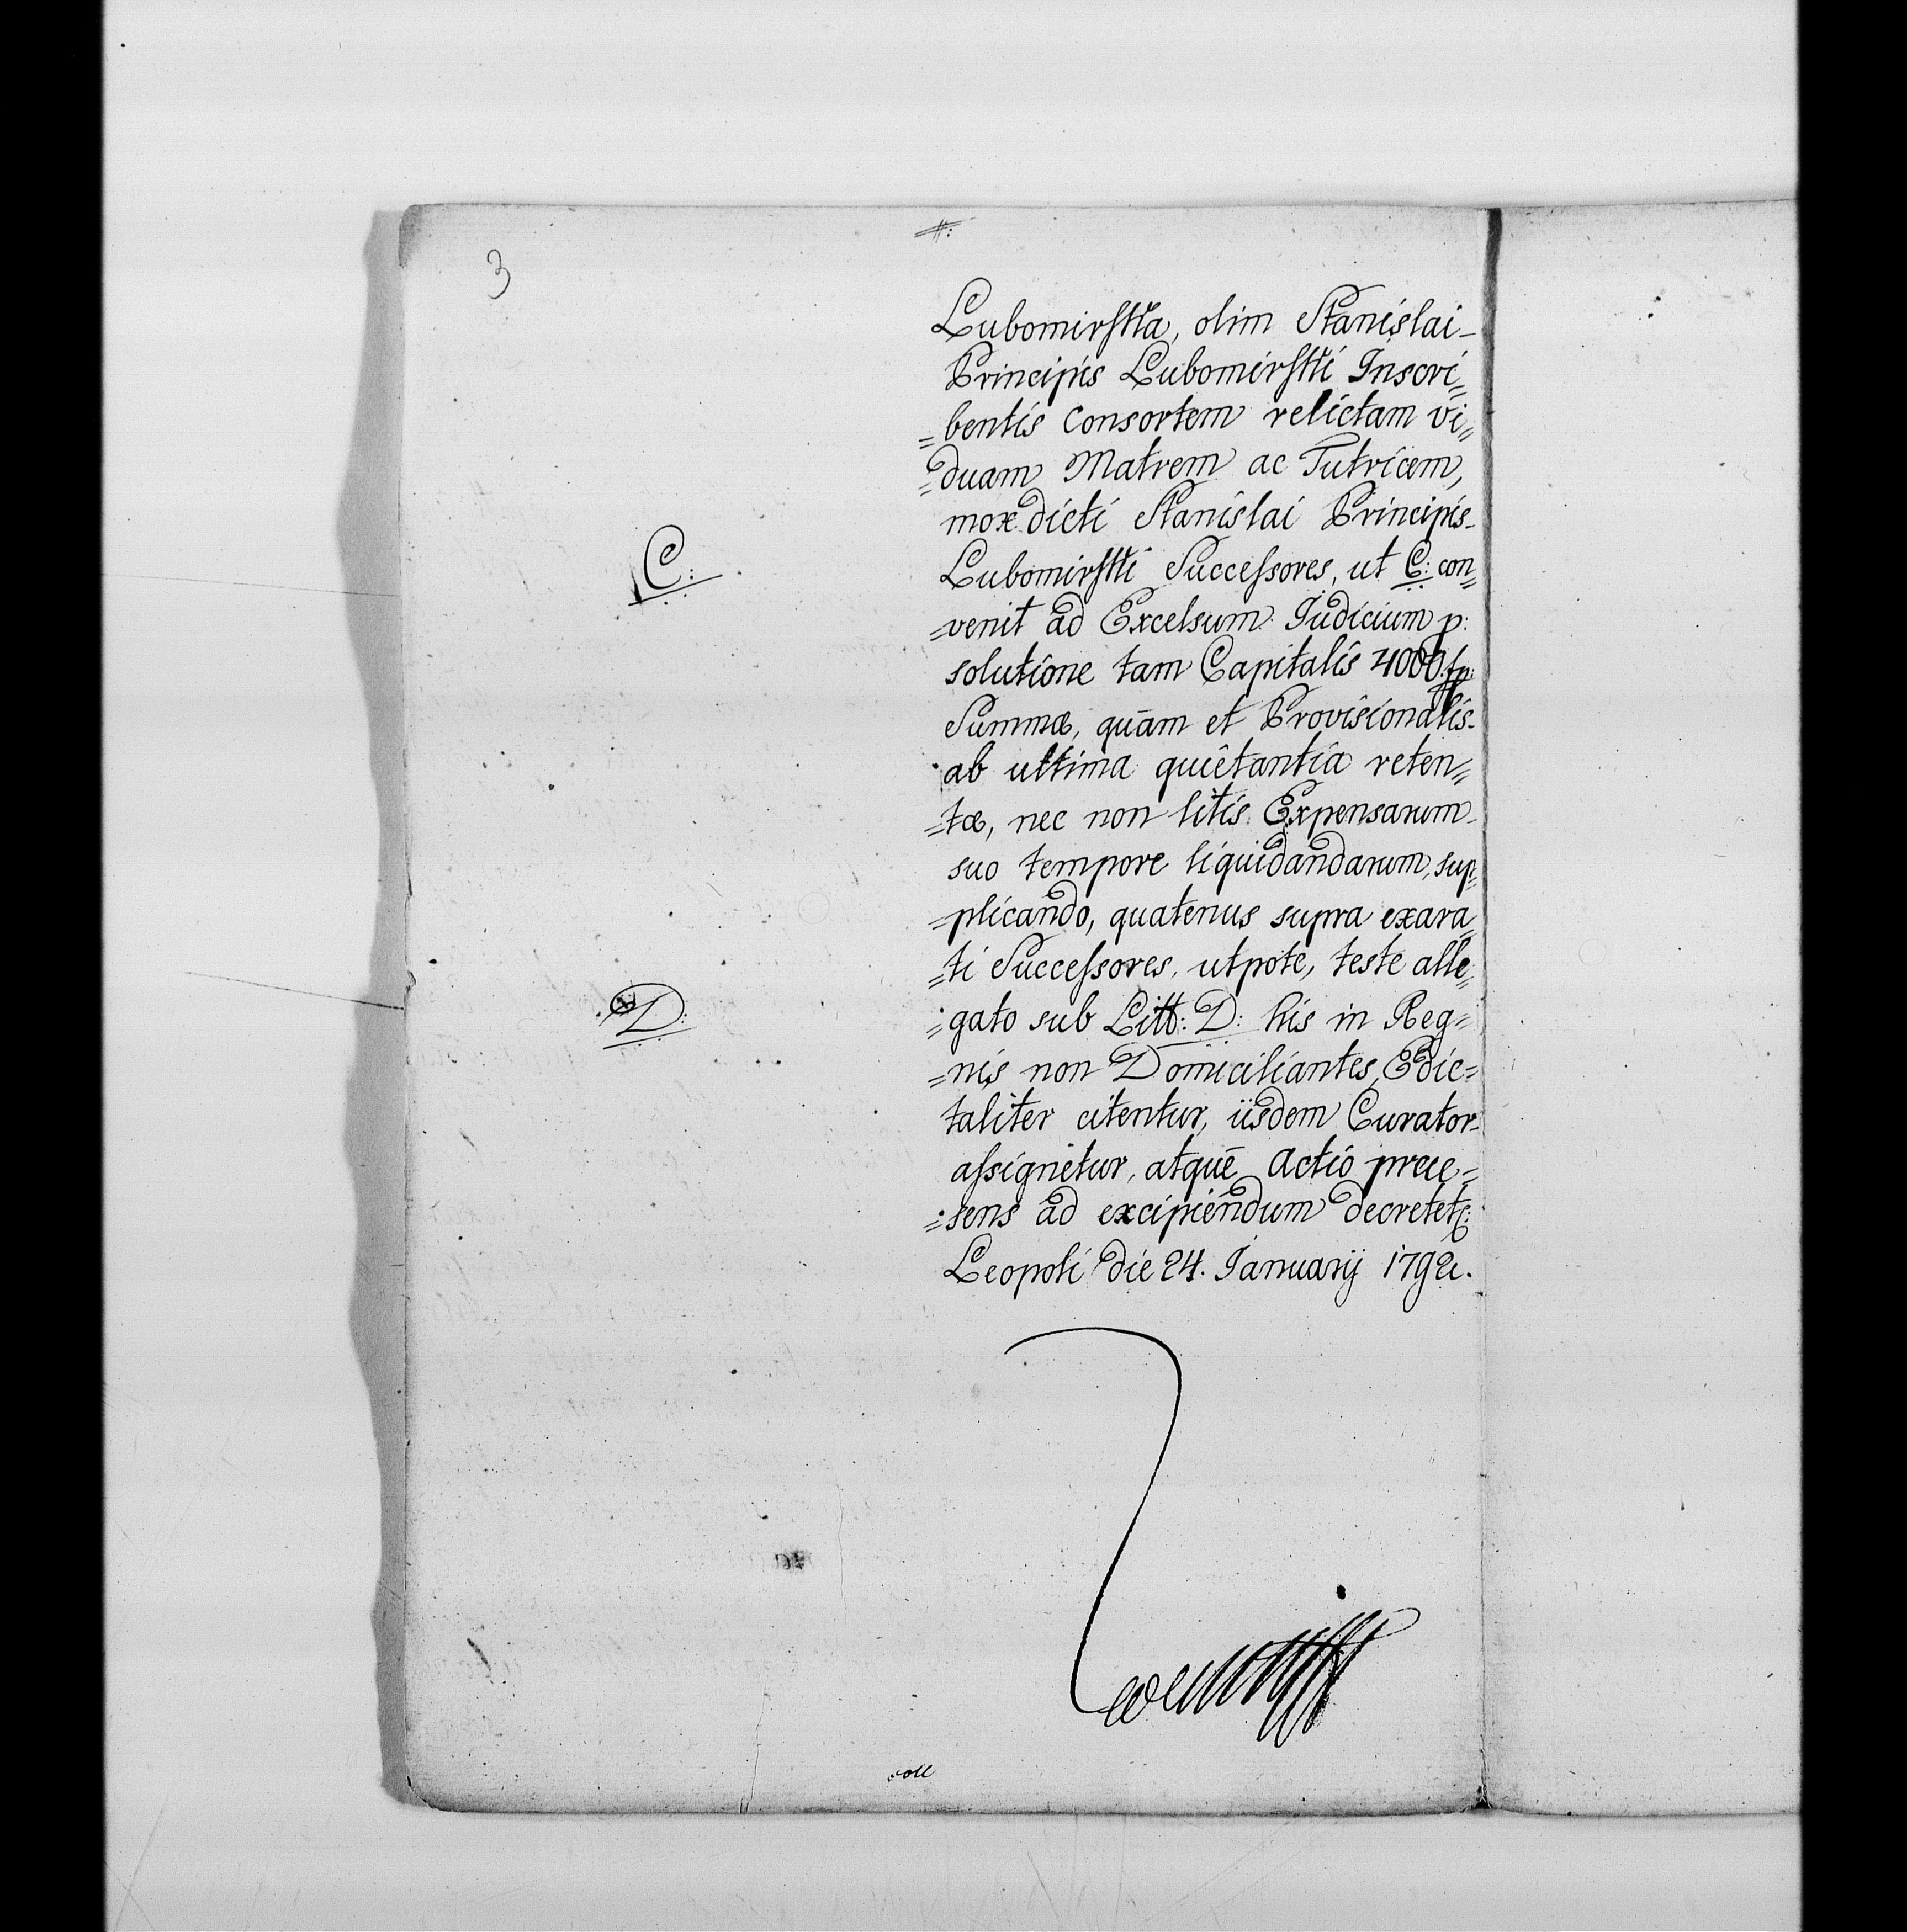 3
Lubomirſka, olim Stanislai-
Principis Lubomirſki Inscri=
=bentis Consortem relictam vi=
=duam Matrem ac Tutricem,
mox dicti Stanislai Principis-
C:
Lubomirſki Succeſsores, ut C: con=
=venit ad Excelsum Iudicium p:
solutione tam Capitalis 4000 fp:
Summæ, quam et Provisionalis-
ab ultima quietantia reten=
=tæ, nec non litis Expensarum-
suo tempore liquidandarum, sup=
=plicando, quatenus supra exara=
=ti Succeſsores, utpote, teste alle=
D:
=gato sub Litt: D: his in Reg=
=nis non Domiciliantes, Edic=
taliter citentur, iisdem Curator-
aſsignetur, atque Actio præe=
=sens ad excipiendum decretetr:
Leopoli die 24. Januarij 1792.
coll